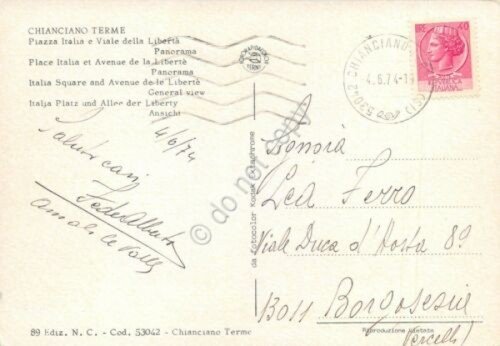 CHIANCIANO TERME
Piazza Italia e Viale della Libertà
Panorama
Place Italie et Avenue de la Libertà
Panorama
Italia Square and Avenue de la Libertà
General view
Italia Platz und Allee der Liberty
Ansicht
4/6/74
Saluti cari
89 Ediz. N. C. - Cod. 53042 - Chianciano Terme
da fotocolor Kodak Ektachrome
53042 CHIANCIANO (SI)
4.6.74-19
40
ITALIANA
Signora
Lea Ferro
Viale Duca d'Aosta 89
13011 Borgosesia
(Vercelli)
Riproduzione vietata
© do not copy